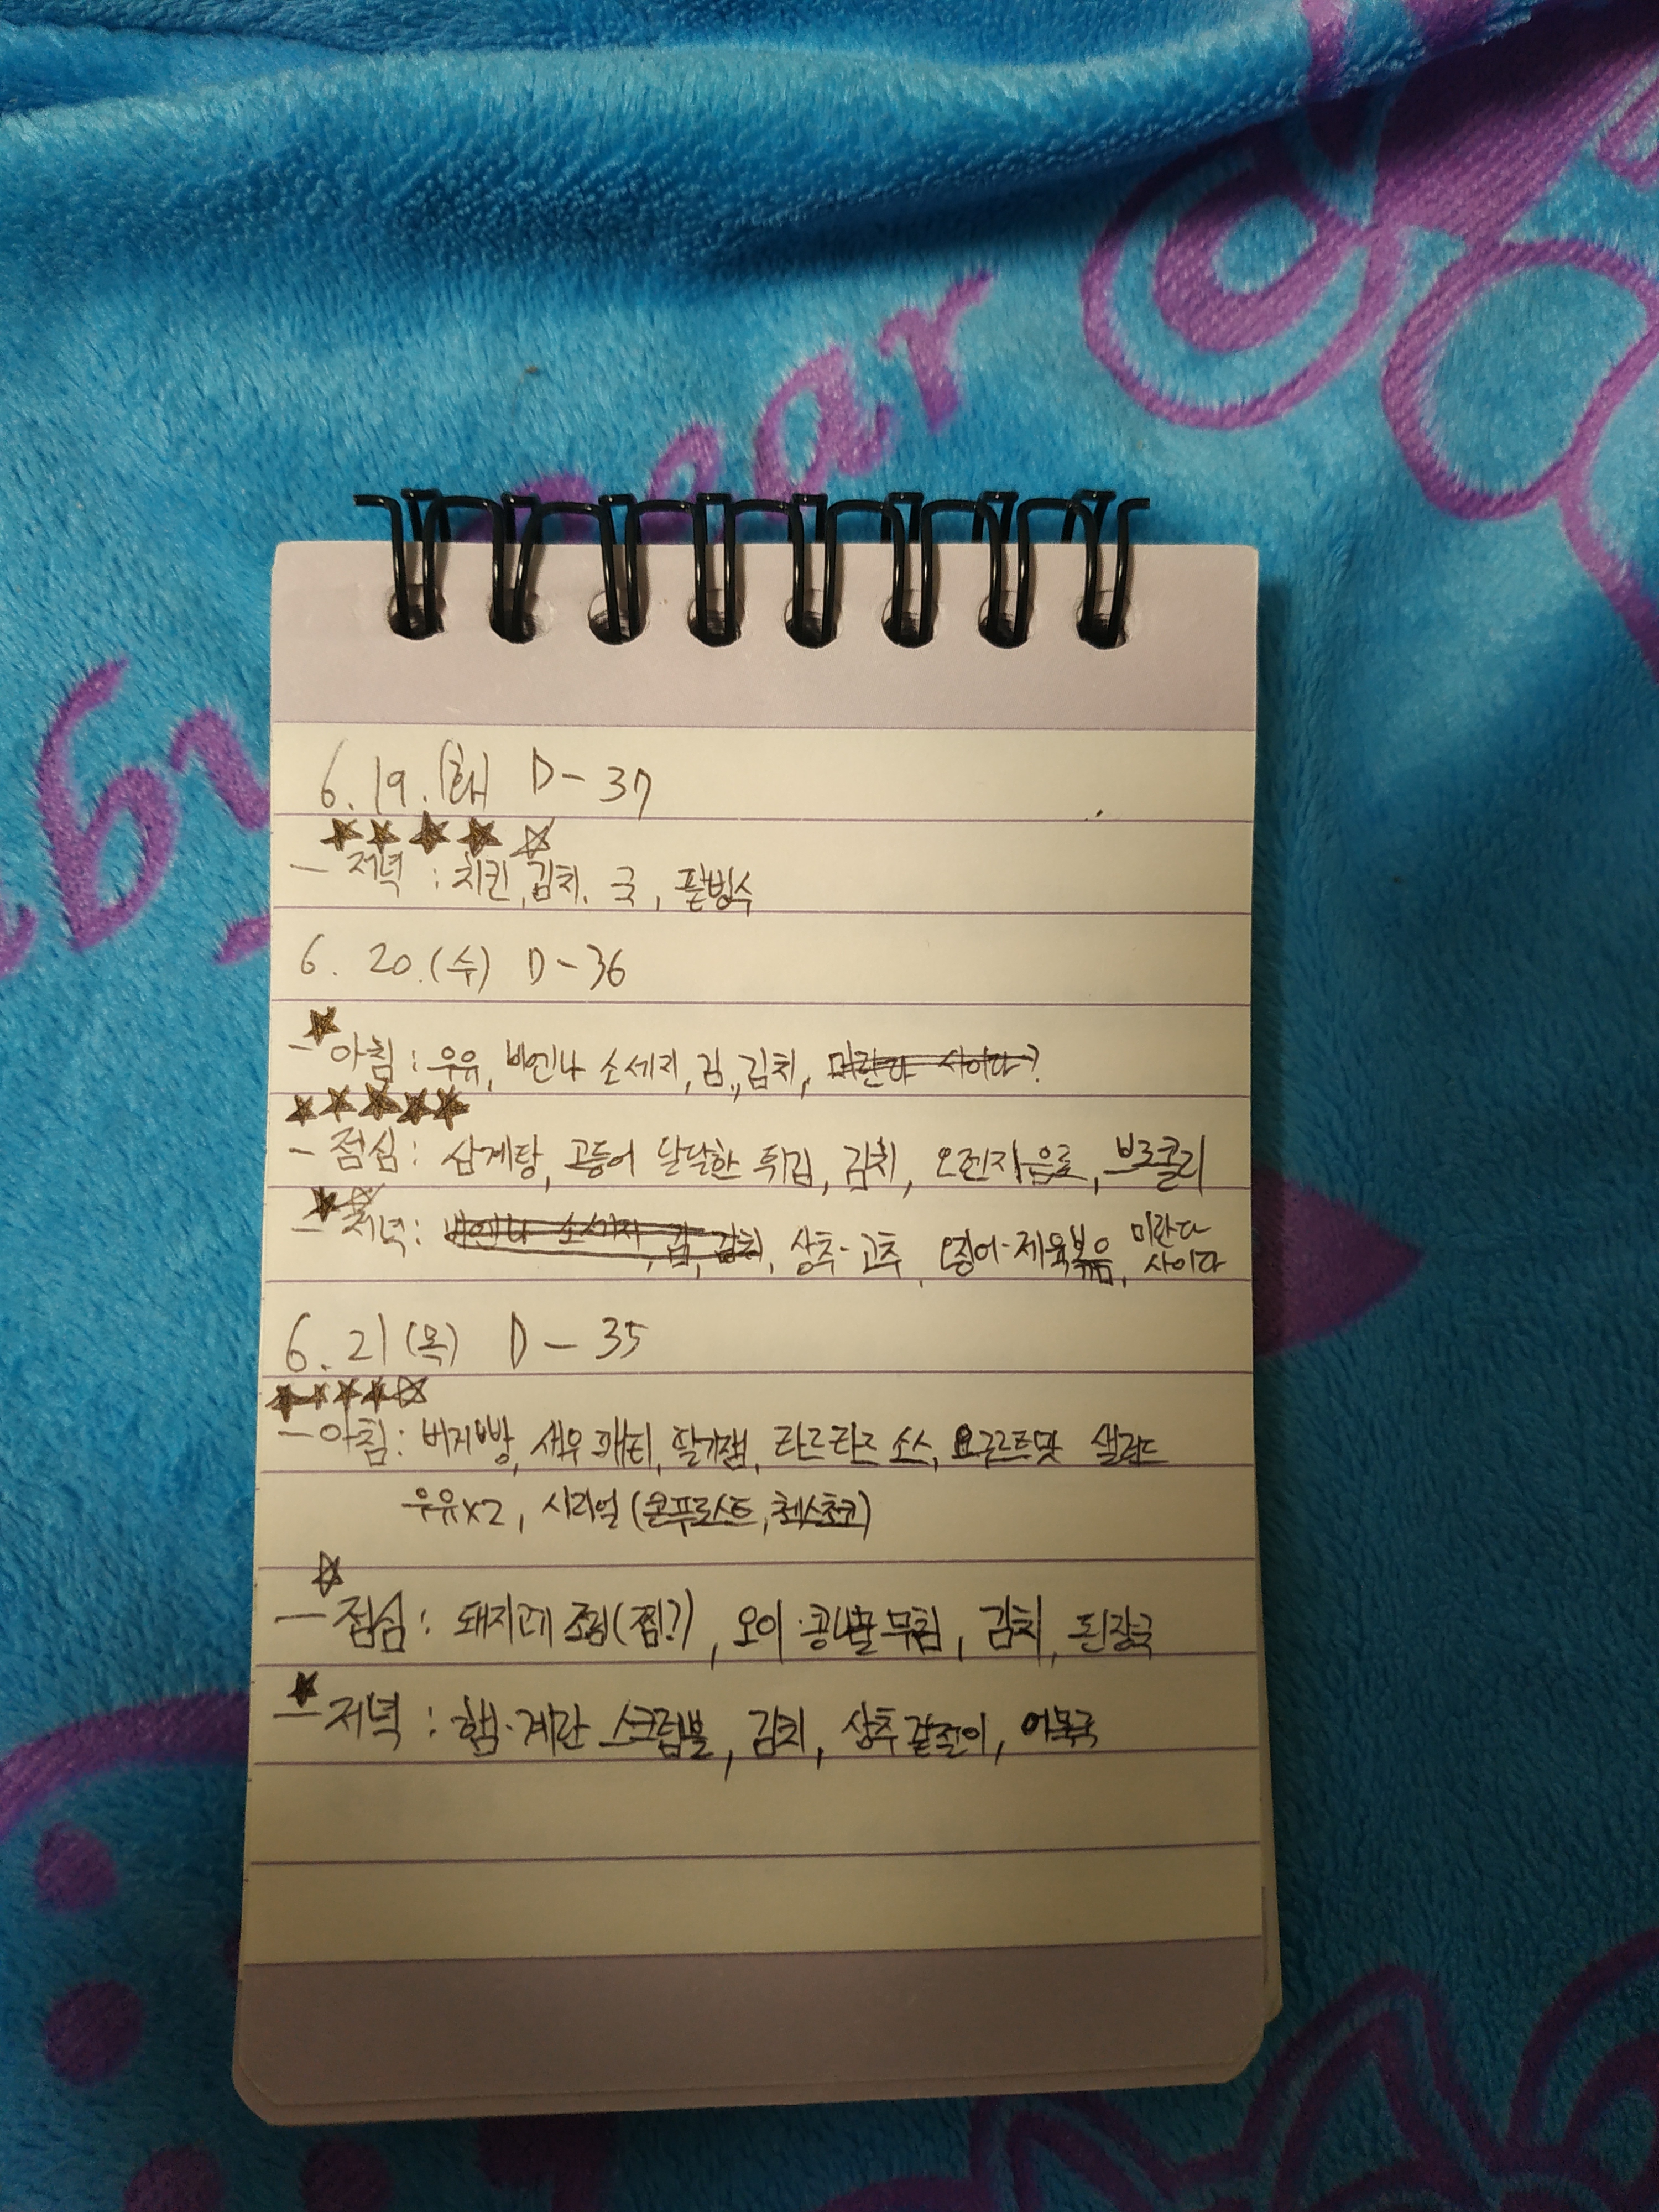 6. 19. (화) D - 37
★★★★☆
- 저녁 : 치킨, 김치, 국, 팥빙수
6. 20. (수) D - 36
★
- 아침 : 우유, 비엔나 소세지, 김, 김치, 미란다 사이다?
★★★★★
- 점심 : 삼계탕, 고등어 달달한 튀김, 김치, 오렌지음료, 브로콜리
★☆
- 저녁 : 비엔나 소세지, 김, 김치, 상추·고추, 오징어·제육볶음, 미란다
사이다
6. 21 (목) D - 35
★★★★☆
- 아침 : 버거빵, 새우 패티, 딸기잼, 타르타르 소스, 요구르트맛 샐러드
우유x2, 시리얼 (콘푸로스트, 첵스초코)
☆
- 점심 : 돼지고기 조림(찜?), 오이·콩나물무침, 김치, 된장국
★
- 저녁 : 햄·계란 스크럼블, 김치, 상추겉절이, 어묵국